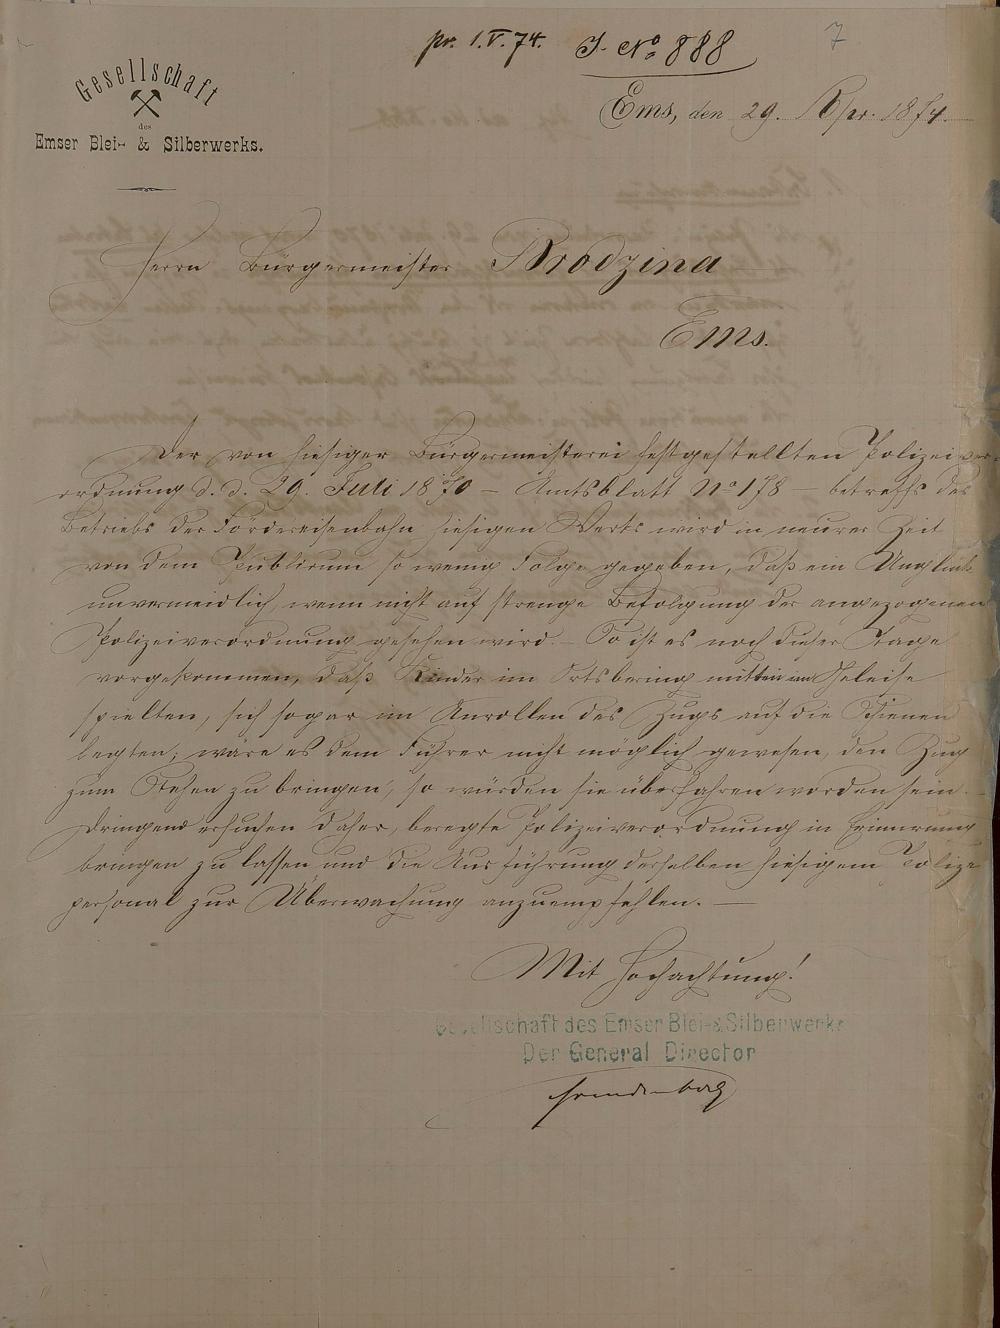 pr. 1.V.74. J. No 888
7
Gesellschaft
des
Emser Blei- & Silberwerks.
Ems, den 29. Apr. 1874.
Herrn Bürgermeister Brodzina
Ems.
Der von hiesiger Bürgermeisterei festgestellten Polizeiver-
ordnung d. d. 29. Juli 1870 – Amtsblatt No 178 – betreffs des
Betriebs der Fördereisenbahn hiesigen Werks wird in neurer Zeit
von dem Publicum so wenig Folge gegeben, daß ein Unglück
unvermeidlich, wenn nicht auf strenge Befolgung der angezogenen
Polizeiverordnung gesehen wird. – So ist es noch dieser Tage
vorgekommen, daß Kinder im Ortsbering mitten im Geleise
spielten, sich sogar im Anrollen des Zugs auf die Schienen
legten; wäre es dem Führer nicht möglich gewesen, den Zug
zum Stehen zu bringen, so würden sie überfahren worden sein.
Dringend ersuchen daher, beregte Polizeiverordnung in Erinnerung
bringen zu lassen und die Ausführung derselben hiesigem Polizei
personal zur Überwachung anzuempfehlen. —
Mit Hochachtung!
Gesellschaft des Emser Blei- & Silberwerks
Der General Director